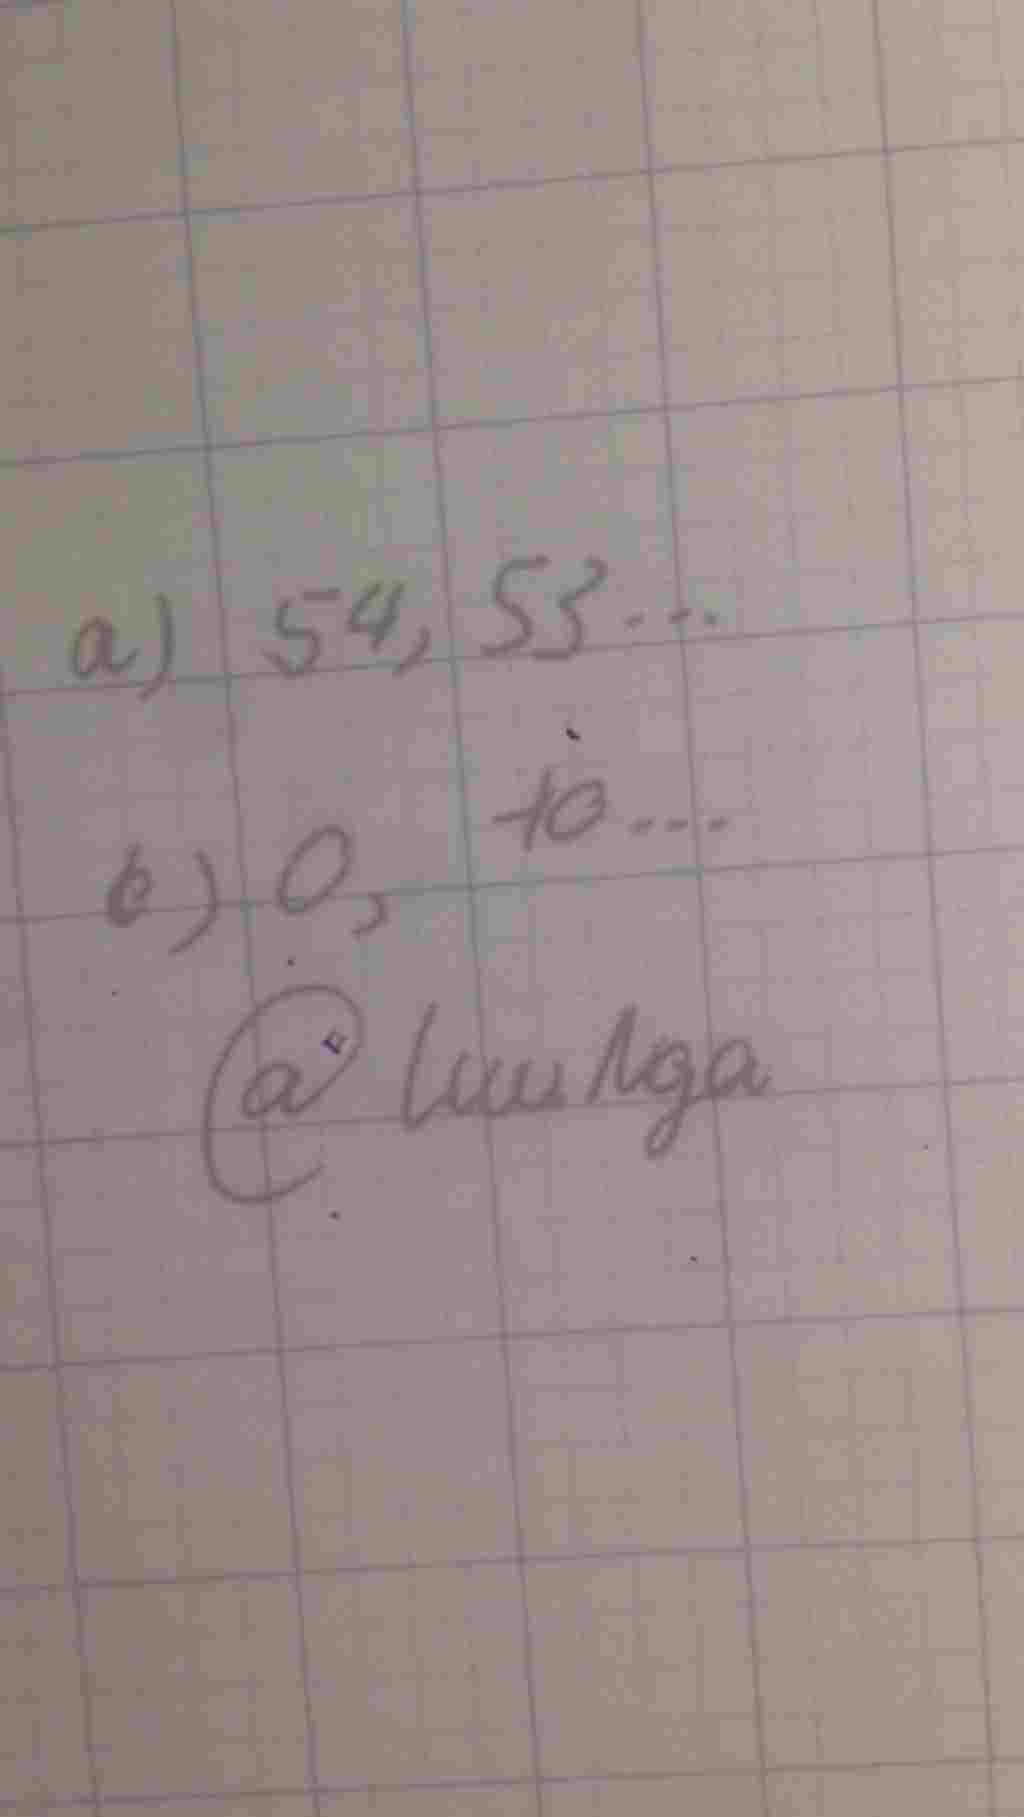 a) 54, 53...
c) 0, 10...
@ Luu Nga